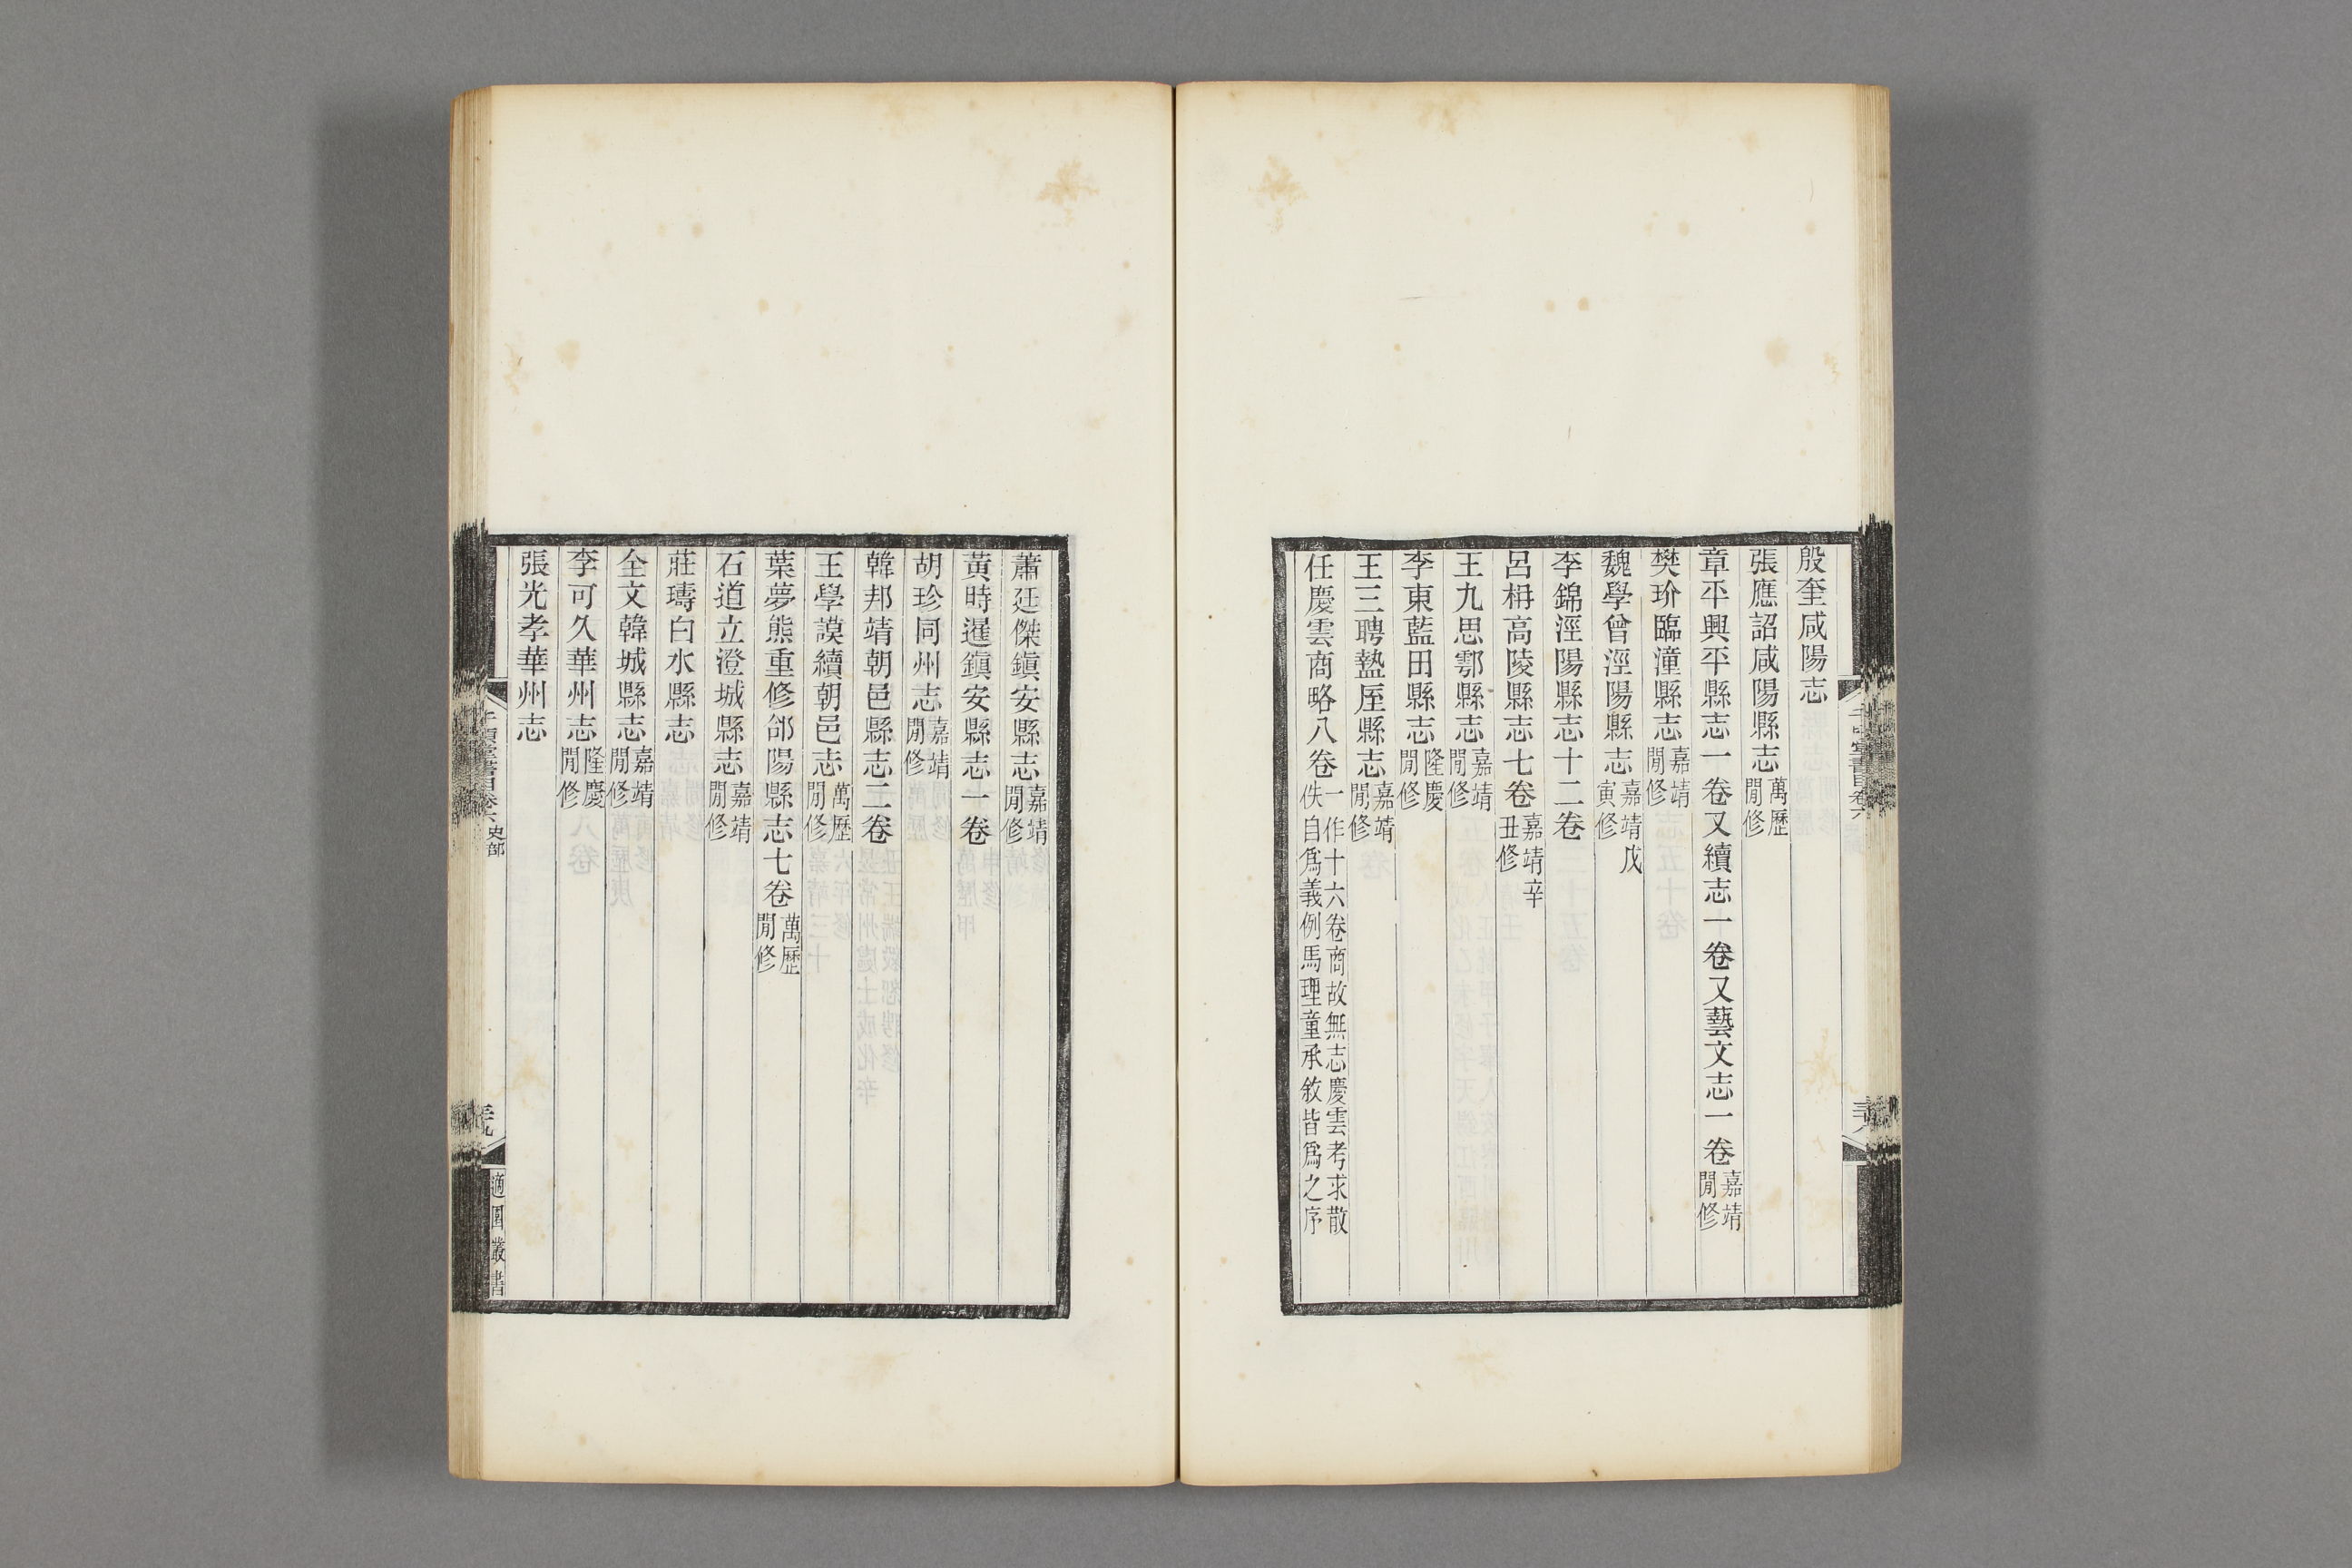 殷奎咸陽志
張應詔咸陽縣志萬歷閒修
章平興平縣志一卷又續志一卷又藝文志一卷嘉靖閒修
樊玠臨潼縣志嘉靖閒修
魏學曾涇陽縣志嘉靖戊寅修
李錦涇陽縣志十二卷
呂柟高陵縣志七卷嘉靖辛丑修
王九思鄠縣志嘉靖閒修
李東藍田縣志隆慶閒修
王三聘盩厔縣志嘉靖閒修
任慶雲商略八卷一作十六卷商故無志慶雲考求散佚自爲義例馬理童承敘皆爲之序
蕭廷傑鎭安縣志嘉靖閒修
黃時暹鎭安縣志一卷
胡珍同州志嘉靖閒修
韓邦靖朝邑縣志二卷
王學謨續朝邑志萬歷閒修
葉夢熊重修郃陽縣志七卷萬歷閒修
石道立澄城縣志嘉靖閒修
莊璹白水縣志
全文韓城縣志嘉靖閒修
李可久華州志隆慶閒修
張光孝華州志
千頃堂書目卷六 史部
適園叢書